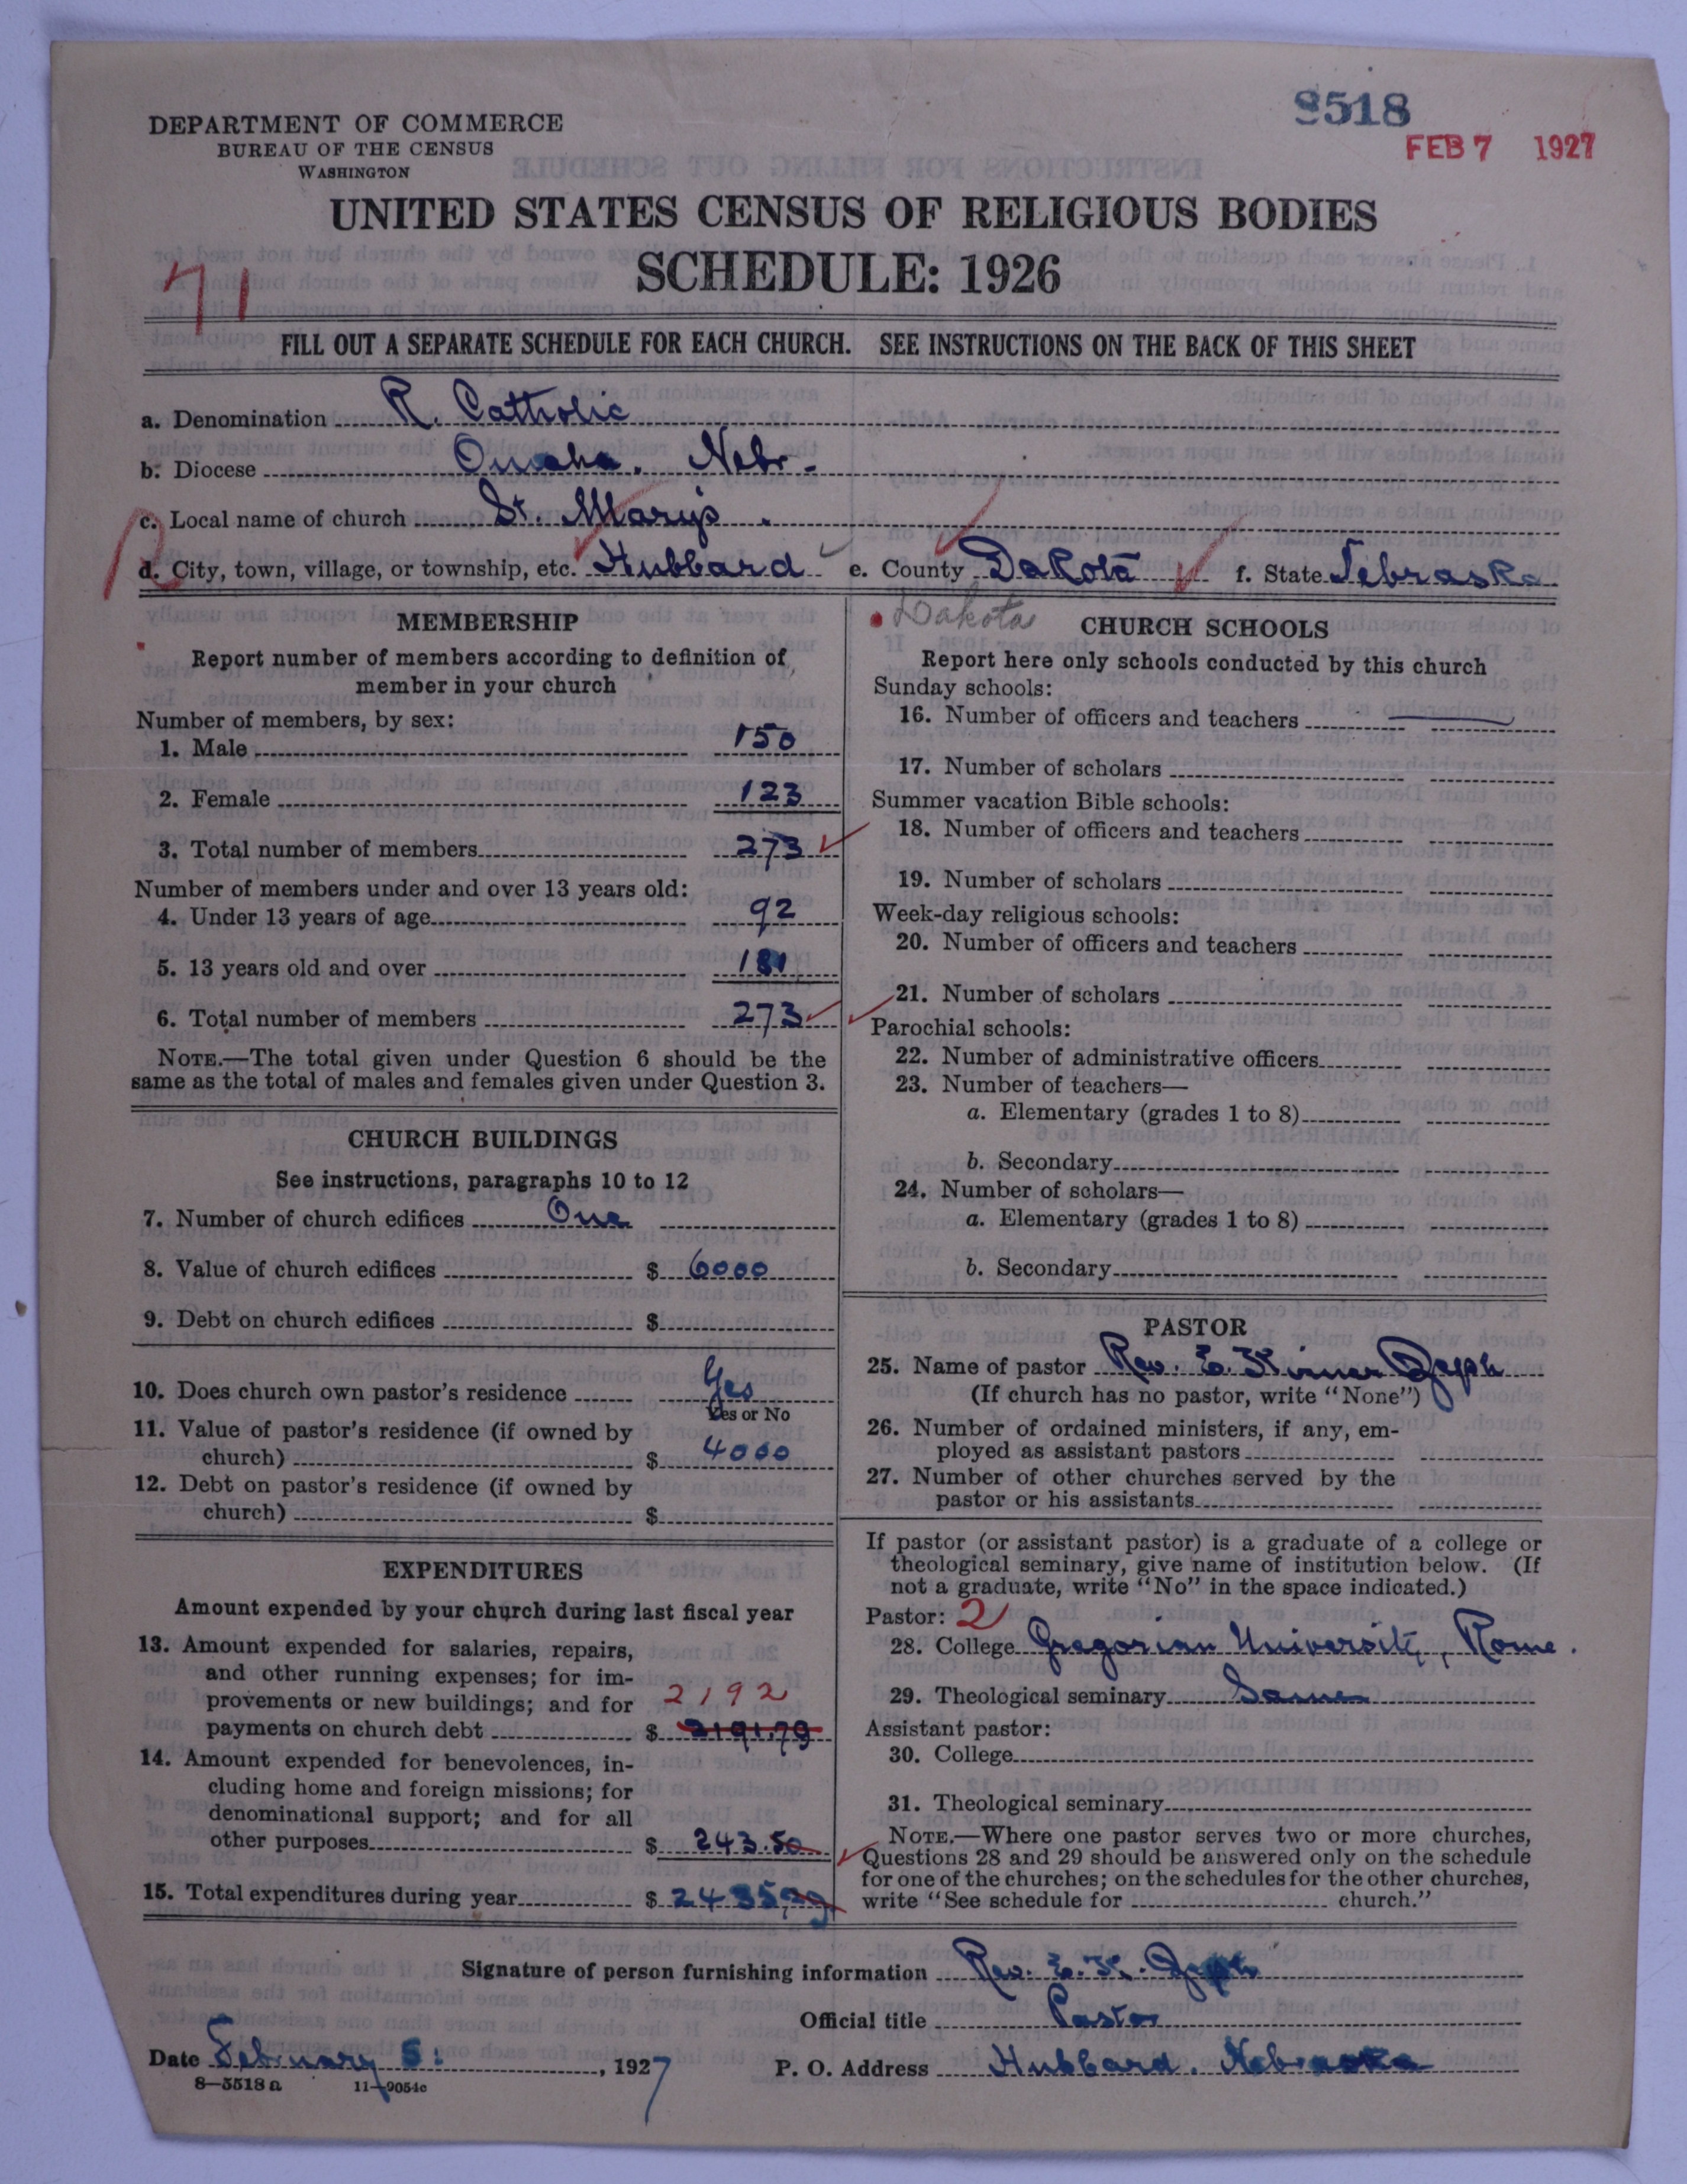 8518
FEB 7 1927
DEPARTMENT OF COMMERCE
BUREAU OF THE CENSUS
WASHINGTON
UNITED STATES CENSUS OF RELIGIOUS BODIES
SCHEDULE: 1926
71
FILL OUT A SEPARATE SCHEDULE FOR EACH CHURCH. SEE INSTRUCTIONS ON THE BACK OF THIS SHEET
a. Denomination R. Catholic
b. Diocese Omaha. Nebr.
c. Local name of church St. Mary's.
d. City, town, village, or township, etc. Hubbard e. County Dakota f. State Nebraska
MEMBERSHIP
Report number of members according to definition of
member in your church
Number of members, by sex:
1. Male 150
2. Female 123
3. Total number of members 273
Number of members under and over 13 years old:
4. Under 13 years of age 92
5. 13 years old and over 181
6. Total number of members 273
NOTE.—The total given under Question 6 should be the
same as the total of males and females given under Question 3.
CHURCH BUILDINGS
See instructions, paragraphs 10 to 12
7. Number of church edifices One
8. Value of church edifices $ 6000
9. Debt on church edifices $
10. Does church own pastor's residence Yes
Yes or No
11. Value of pastor's residence (if owned by
church) $ 4000
12. Debt on pastor's residence (if owned by
church) $
EXPENDITURES
Amount expended by your church during last fiscal year
13. Amount expended for salaries, repairs,
and other running expenses; for im-
provements or new buildings; and for 2192
payments on church debt $ 2191.79
14. Amount expended for benevolences, in-
cluding home and foreign missions; for
denominational support; and for all
other purposes $ 243.50
15. Total expenditures during year $ 2435.29
Dakota
CHURCH SCHOOLS
Report here only schools conducted by this church
Sunday schools:
16. Number of officers and teachers
17. Number of scholars
Summer vacation Bible schools:
18. Number of officers and teachers
19. Number of scholars
Week-day religious schools:
20. Number of officers and teachers
21. Number of scholars
Parochial schools:
22. Number of administrative officers
23. Number of teachers—
a. Elementary (grades 1 to 8)
b. Secondary
24. Number of scholars—
a. Elementary (grades 1 to 8)
b. Secondary
PASTOR
25. Name of pastor Rev. E.
(If church has no pastor, write "None")
26. Number of ordained ministers, if any, em-
ployed as assistant pastors
27. Number of other churches served by the
pastor or his assistants
If pastor (or assistant pastor) is a graduate of a college or
theological seminary, give name of institution below. (If
not a graduate, write "No" in the space indicated.)
Pastor: 2
28. College Gregorian University, Rome.
29. Theological seminary Same
Assistant pastor:
30. College
31. Theological seminary
NOTE.—Where one pastor serves two or more churches,
Questions 28 and 29 should be answered only on the schedule
for one of the churches; on the schedules for the other churches,
write "See schedule for church."
Signature of person furnishing information Rev. E. K.
Official title Pastor
Date February 5. , 1927 P. O. Address Hubbard. Nebraska
8—5518 a 11—9054c